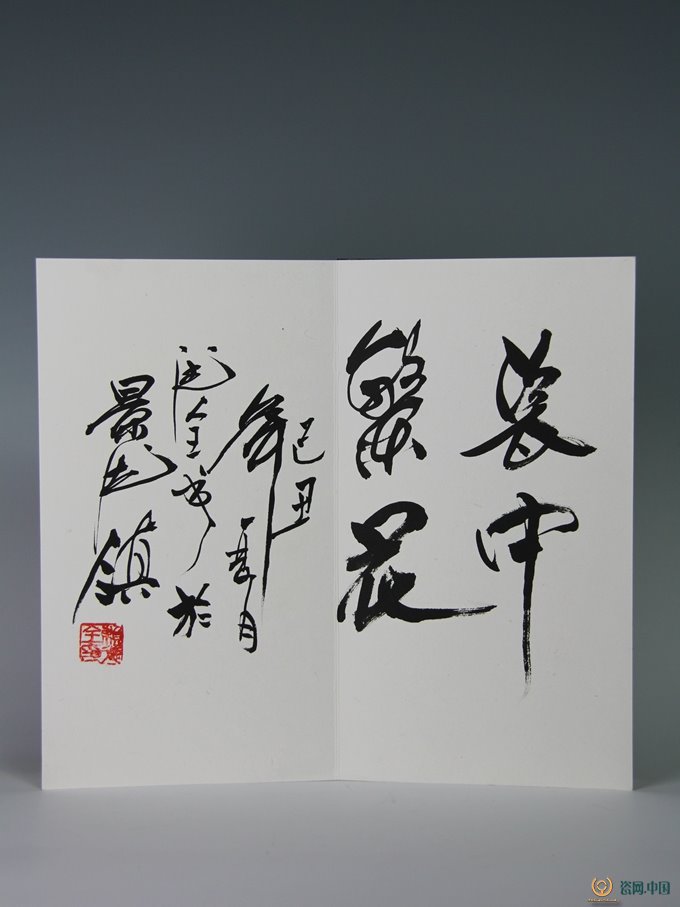 瓷中
繁花
己丑
年夏月
全书於
景德镇
瓷网.中国